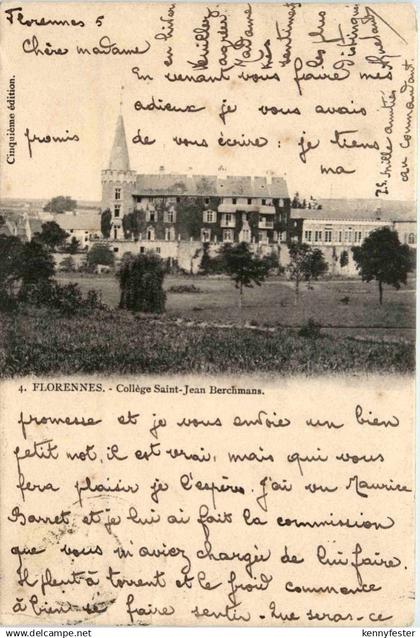 Florennes 5
Chère madame
En venant vous faire mes
adieux je vous avais
promis de vous écrire : je tiens
ma
Cinquième édition.
en hiver
Veuillez
agréer
Madame
les
sentiments
les plus
distingués
mille amitiés
au Commandant.
4. FLORENNES. - Collège Saint-Jean Berchmans.
promesse et je vous envoie un bien
petit mot, il est vrai, mais qui vous
fera plaisir je l'espère. J'ai vu Maurice
Barret et je lui ai fait la commission
que vous m'aviez chargée de lui faire.
Il pleut à torrent et le froid commence
à bien se faire sentir - Que sera-ce
www.delcampe.net
kennyfester